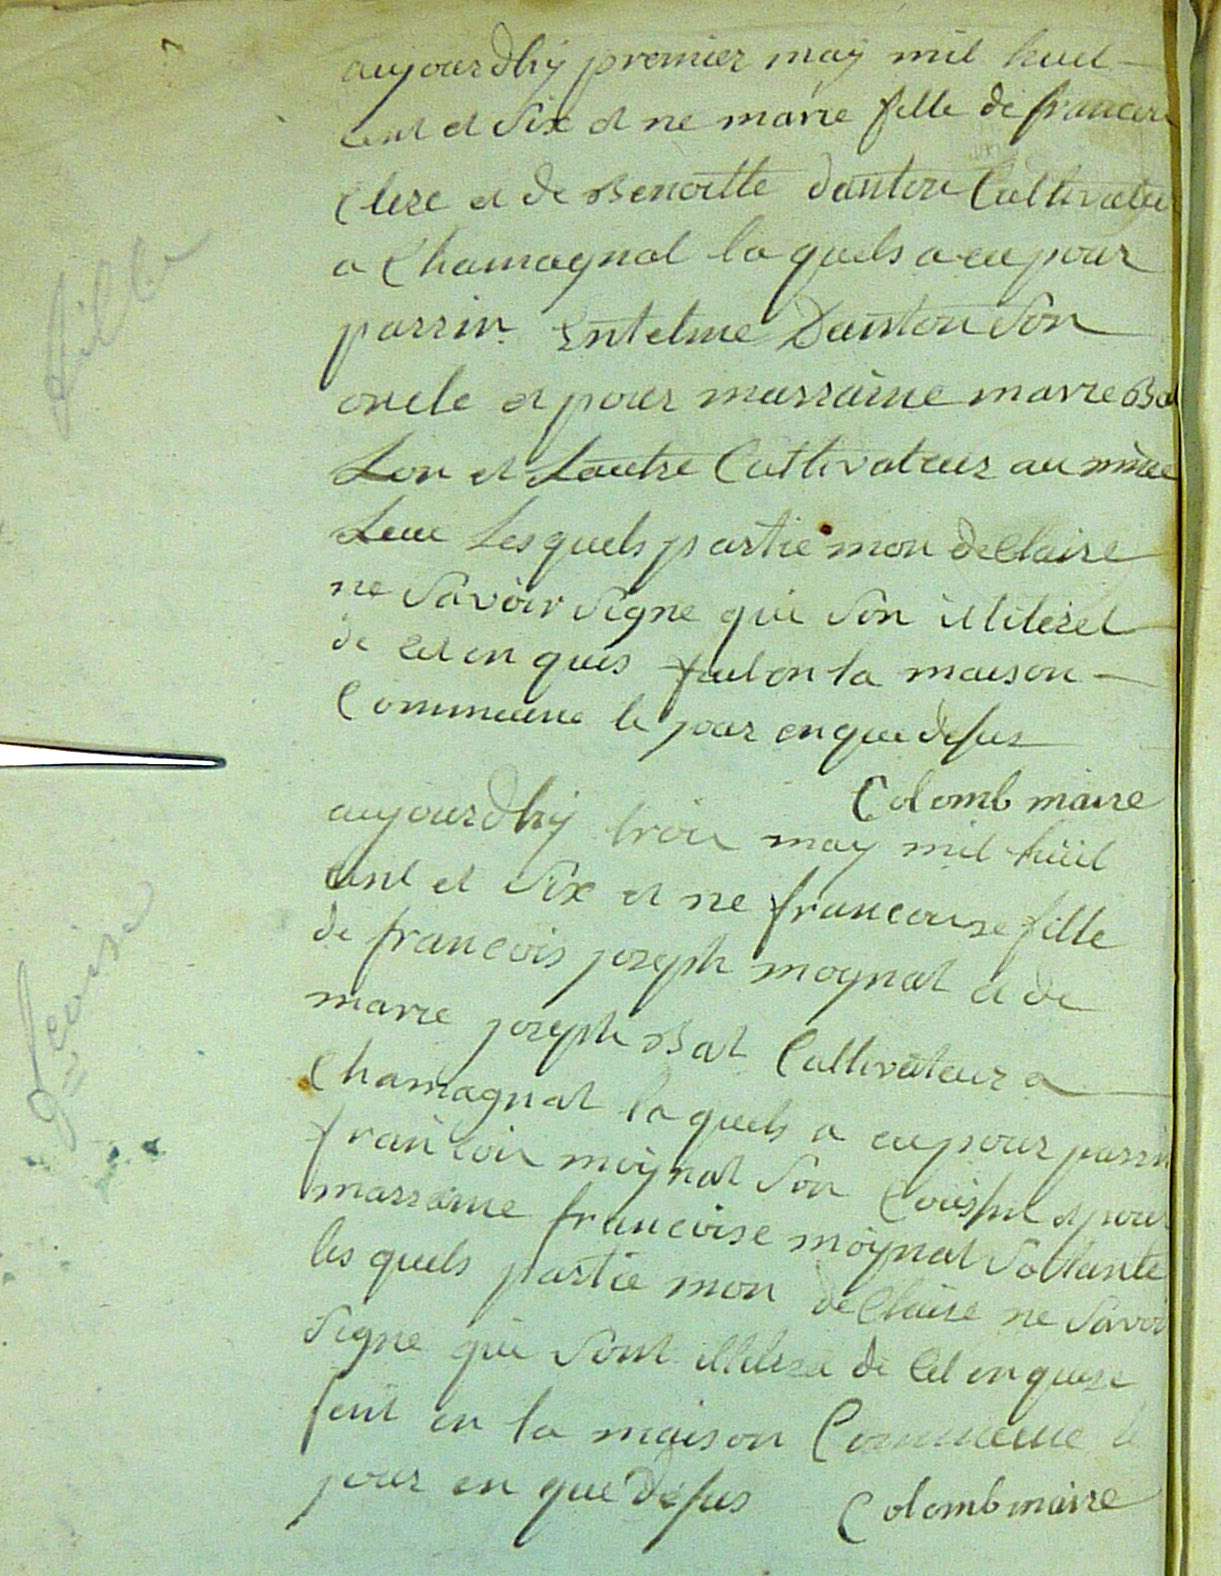 aujourdhÿ premier maÿ mil huit
cent et Six et ne marie fille de francois
Clere et de Benoitte danton Cultivateur
a Chamagnat la quels a eu pour
parrin Entelme Danton Son
oncle et pour marraine marie Ba
Lon et Lautre Cultivateur au même
Leue Les quels partie mon declaire
ne Savoir Signe qui Son illiteret
de cet en quis fait en la maison
Commune le jour en que desus
Colomb maire
aujourdhÿ trois maÿ mil huit
cent et Six et ne francoise fille
de francois joseph moynat et de
marie joseph Bat Cultivateur a
Chamagnat la quels a eu pour parrin
francois moÿnat Son et pour
marraine francoise moÿnat Sa tante
les quels partie mon declaire ne Savoir
Signe qui Sont de Cet en quise
fait en la maison Commune le
jour en que desus
Colomb maire